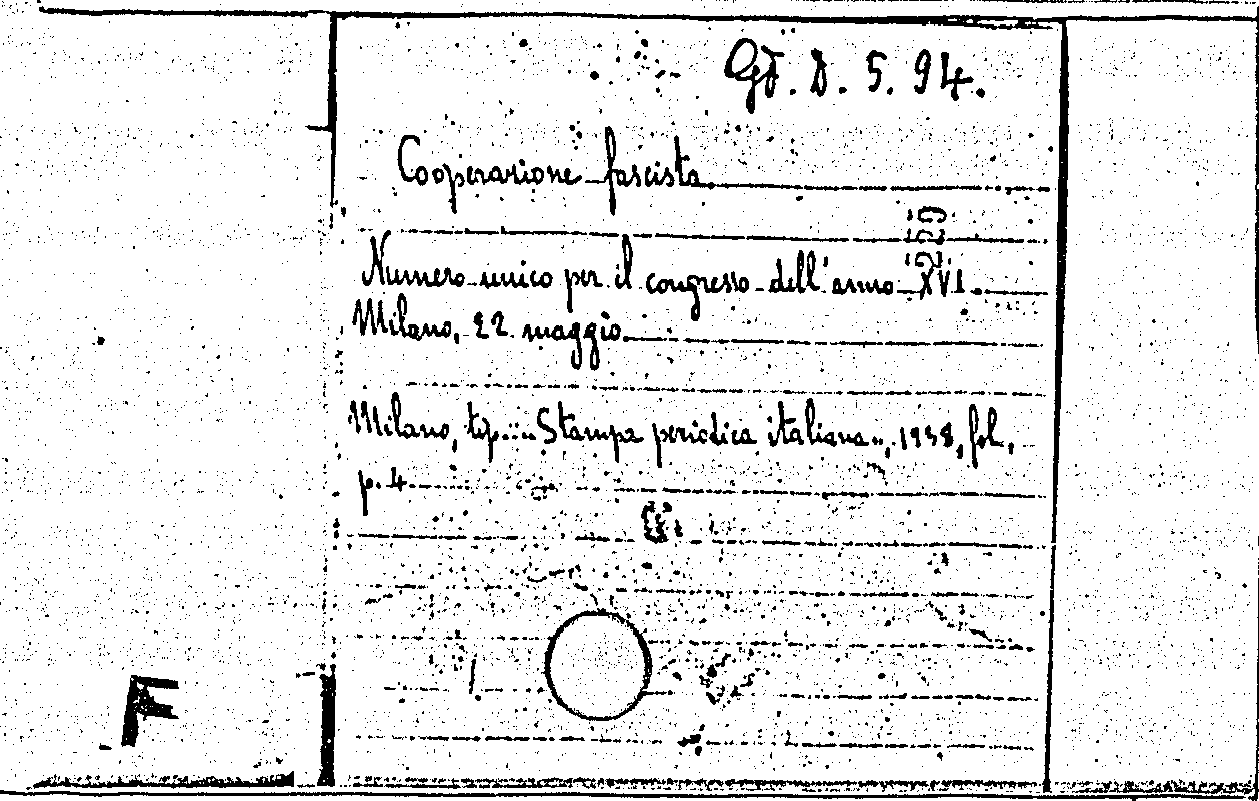 D. 5. 94.
Cooperazione fascista.
Numero unico per il congresso dell'anno XVI.
Milano, 22 maggio.
Milano, tip. "Stampa periodica italiana", 1938, fol.
p. 4
F